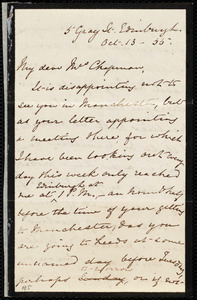 5 Gray St. Edinburgh.
Oct. 13 - 55.
My dear Mrs Chapman,
It is disappointing not to
see you in Manchester, but
as your letter appointing
a meeting there for which
I have been looking out every
day this week only reached
Edinburgh at
me at 1 P.M. - an hour & half
before the time of your getting
to Manchester, & as you
are going to Leeds at some
unnamed day before Tuesday
perhaps to-morrow Sunday, or if not